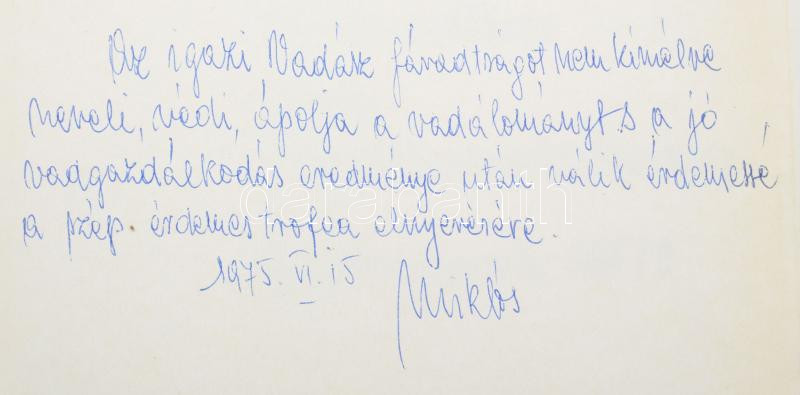 Az igazi Vadász fáradtságot nem kimélve
neveli, védi, ápolja a vadálományt s a jó
vadgazdálkodás eredménye után válik érdemessé
a szép érdemes trófea elnyerésére.
1975. VI. 15
Miklós
darabanth